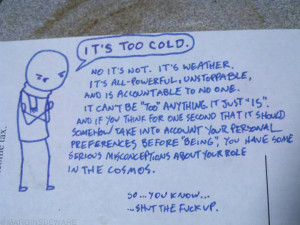 IT'S TOO COLD.
NO IT'S NOT. IT'S WEATHER.
IT'S ALL-POWERFUL, UNSTOPPABLE,
AND IS ACCOUNTABLE TO NO ONE.
IT CAN'T BE "TOO" ANYTHING. IT JUST "IS".
AND IF YOU THINK FOR ONE SECOND THAT IT SHOULD
SOMEHOW TAKE INTO ACCOUNT YOUR PERSONAL
PREFERENCES BEFORE "BEING", YOU HAVE SOME
SERIOUS MISCONCEPTIONS ABOUT YOUR ROLE
IN THE COSMOS.
SO... YOU KNOW...
...SHUT THE FUCK UP.
tax.